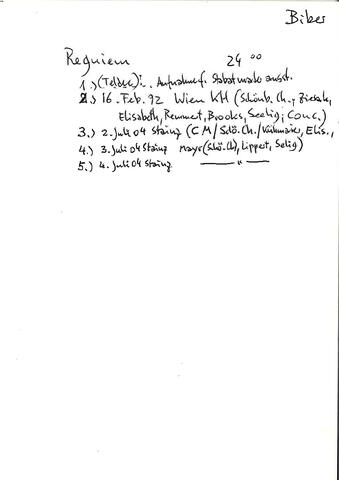 Biber
Requiem 24 00
1.) (Teldec)! Aufnahme f. Stabat mater
2.) 16. Feb. 92 Wien KH (Schönb. Ch., Ziesak,
Elisabeth, Remmet, Brooks, Seelig; Conc.)
3.) 2. Juli 04 Stainz (CM/Schö. Ch./ Elis.,
4.) 3. Juli 04 Stainz Mayr (Schö. Ch), Lippert, Selig)
5.) 4. Juli 04 Stainz —— " ——